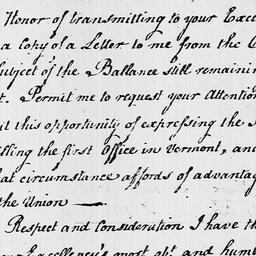 Honor of transmitting to your Exce
a Copy of a Letter to me from the
ubject of the Ballance still remainin
t. Permit me to request your Attention
it this opportunity of expressing the
lling the first Office in Vermont, and
at circumstance affords of advantag
the Union —
Respect and Consideration I have th
Excellency's most obt. and humb